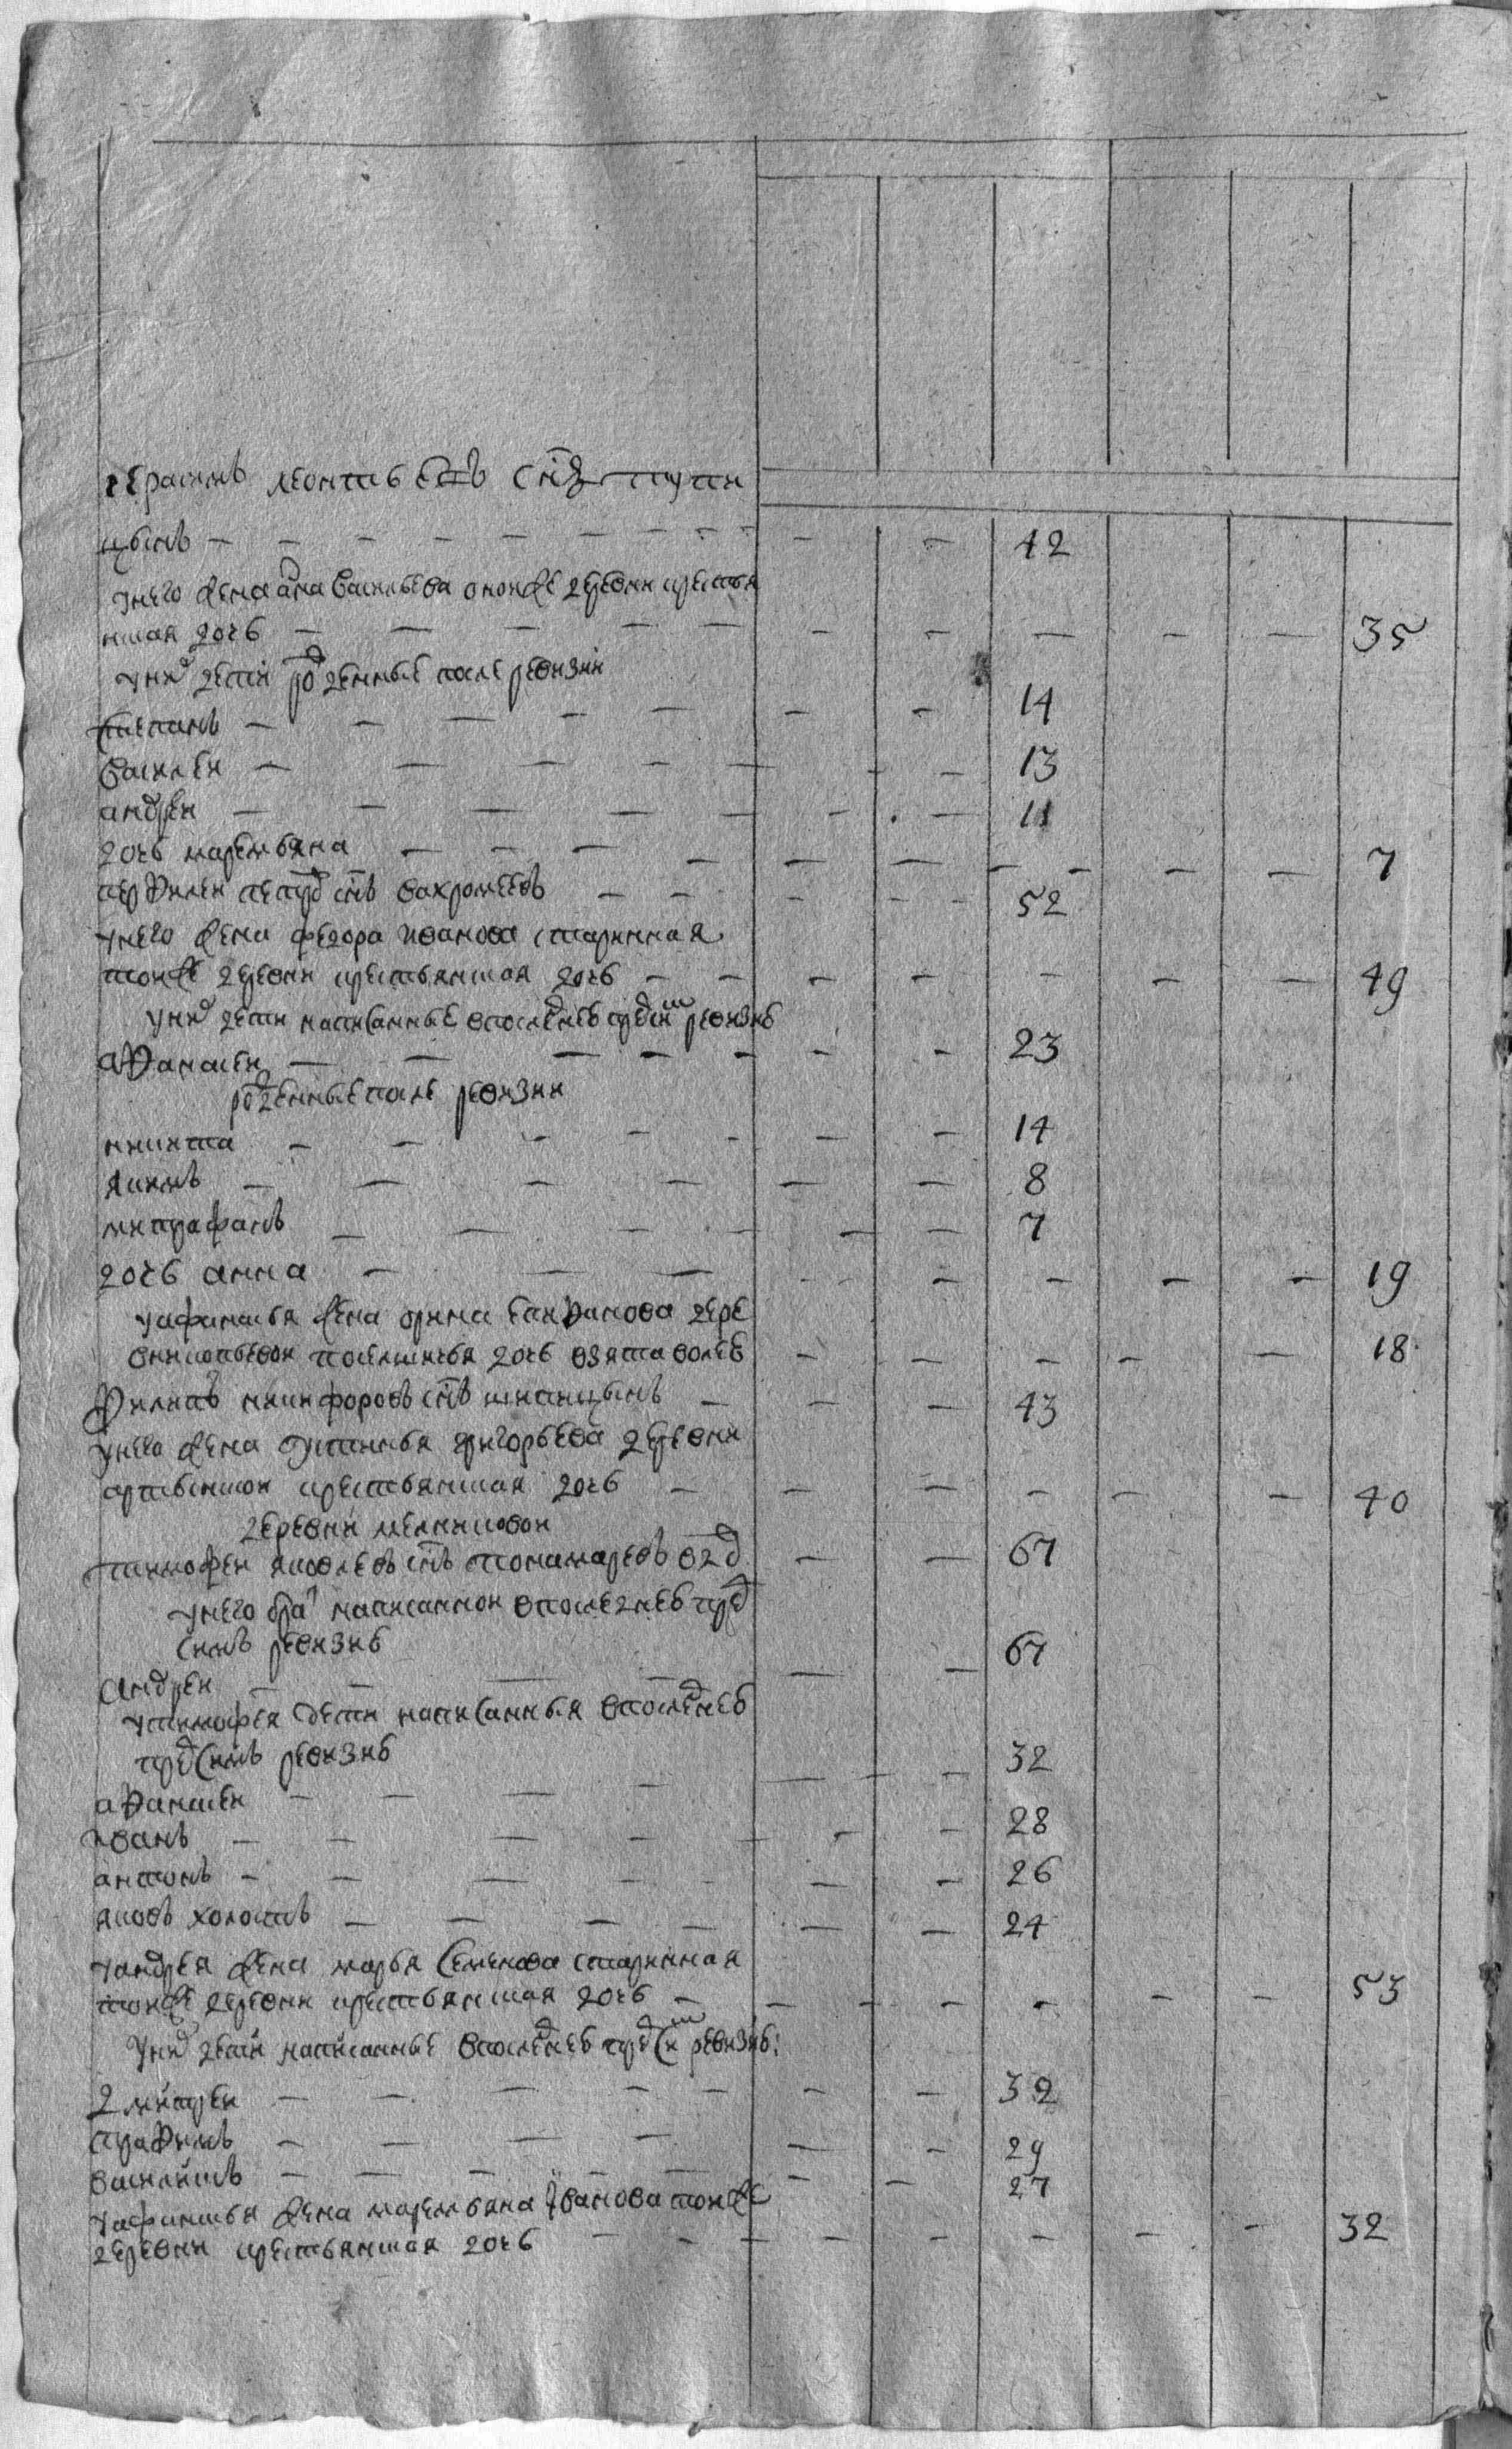 герасимъ леонтьевъ снъ тупи
цынъ — — — — — — — — — — — 42
унего жена ана васильева оноиже деревни крестья
нская дочь — — — — — — — — — — 35
унихъ дети рожденные после ревизии
степанъ — — — — — — — 14
василеи — — — — — — — 13
андреи — — — — — — — 11
дочь маремьяна — — — — — — — — — 7
перфилеи петровъ снъ вахромеевъ — — — — — 52
унего жена федора иванова старинная
тоиже деревни крестьянская дочь — — — — — — — 49
унихъ дети написанные впоследнеи предъ симъ ревизиі
афанасеи — — — — — — — 23
рожденные после ревизии
никита — — — — — — — 14
якимъ — — — — — — 8
митрофанъ — — — — — — 7
дочь анна — — — — — — — — 19
уафанасья жена орина епифанова дере
вни           поселничья дочь взята        — — — — — 18
филипъ никифоровъ снъ шипицынъ — — — 43
унего жена устинья григорьева деревни
            крестьянская дочь — — — — — — 40
деревни мелниковои
тимофеи яковлевъ снъ пономаревъ вдовъ — — 67
унего братъ написаннои впоследнеи пред
симъ ревизиі
андреи — — — — — 67
утимофея дети написанныя впоследнеи
пред симъ ревизиі
афанасеи — — — — — — — 32
иванъ — — — — — — — 28
антонъ — — — — — — — 26
яковъ холостъ — — — — — — 24
уандрея жена марья семенова старинная
тоиже деревни крестьянская дочь — — — — — — — 53
унихъ дети написанные впоследнеи пред симъ ревизиі:
дмитреи — — — — — — — 32
трафимъ — — — — — — 29
василистъ — — — — — — — 27
уафанасья жена маремьяна иванова тоиже
деревни крестьянская дочь — — — — — — — — 32